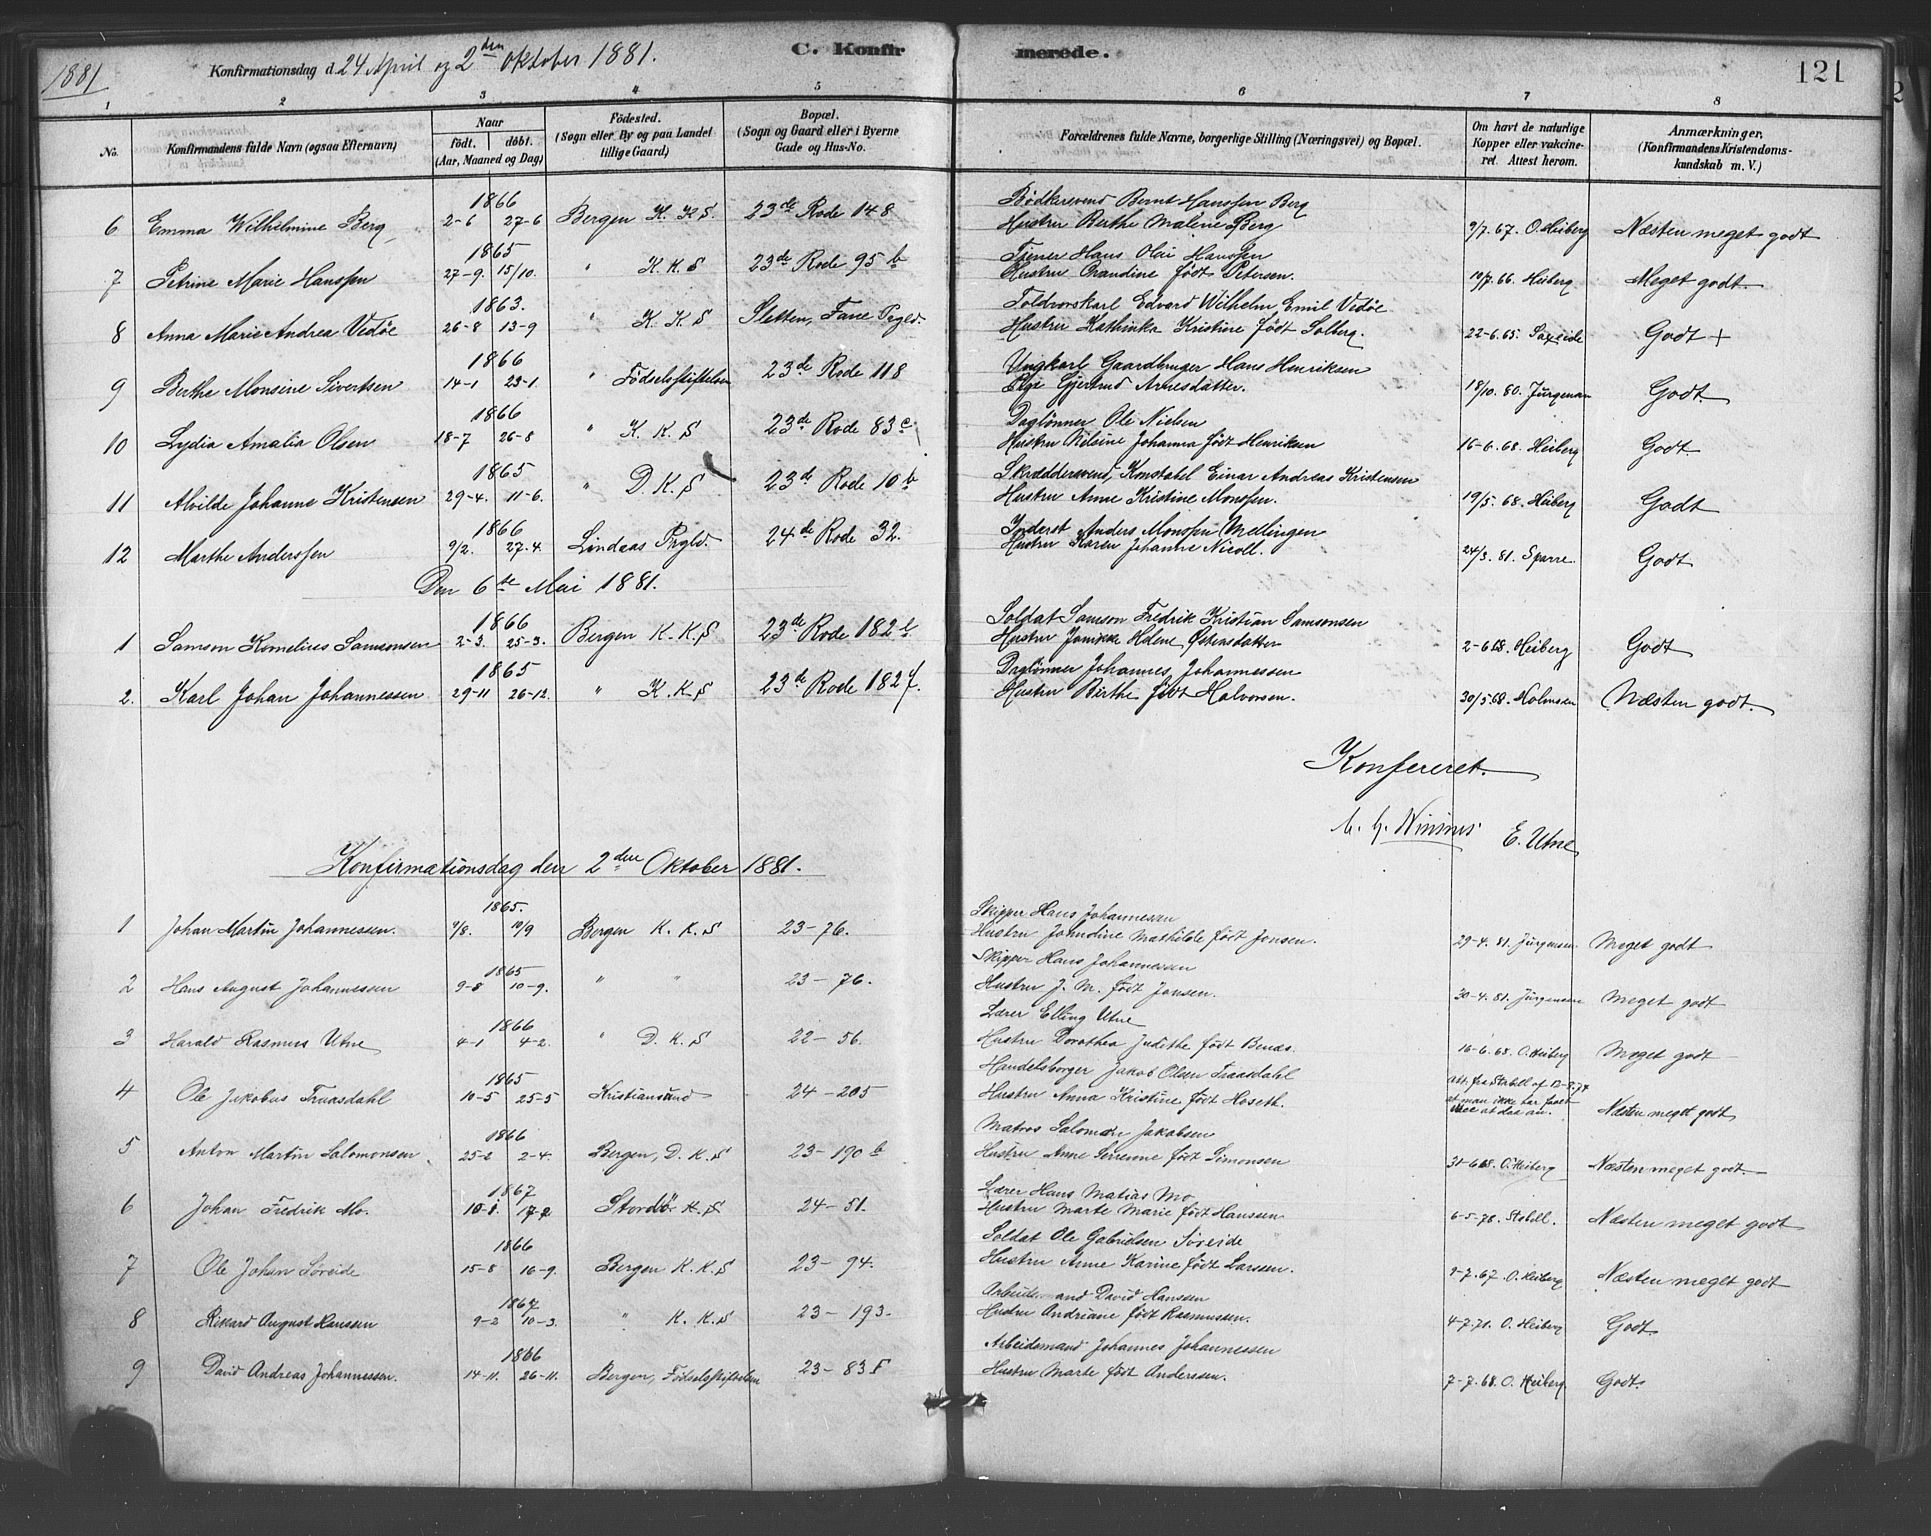 1881
Konfirmationsdag d. 24 April og 2den Oktober 1881.
C. Konfirmerede.
121
1 2 3 4 5 6 7 8
No. Konfirmandens fulde Navn (ogsaa Efternavn) Naar født. døbt. (Aar, Maaned og Dag) Fødested. (Sogn eller By og paa Landet tillige Gaard) Bopæl. (Sogn og Gaard eller i Byerne Gade og Hus-No. Forældrenes fulde Navne, borgerlige Stilling (Næringsvei) og Bopæl. Om havt de naturlige Kopper eller vakcineret. Attest herom. Anmærkninger, (Konfirmandens Kristendomskundskab m. V.)
1866 Bødkersvend Bernt Hanssen Berg
6 Emma Wilhelmine Berg 2-6 27-6 Bergen K. K S. 23de Rode 148 Hustru Berthe Malene Berg 9/7. 67. O. Heiberg Næsten meget godt
1865 Tjener Hans Olai Hanssen
7 Petrine Marie Hanssen 27-9. 15/10. " K. K. S 23de Rode 95 b Hustru Orandine født Petersen. 10/7. 66. Heiberg Meget godt
1863. Toldrorskarl Edvard Wilhelm Emil Vedøe
8 Anna Marie Andrea Vedøe 26-8 13-9 " K. K S Sletten, Fane Prgld. Hustru Kathinka Kristine født Solberg. 22-6. 65. Saxeide Godt +
1866 Ungkarl Gaardbruger Hans Henriksen
9 Berthe Monsine Sivertsen 14-1 23-1. " Fødselsstiftelsen 23de Rode 118 Pige Gjertrud Arnesdatter. 18/10. 80. Jürgensen Godt.
1866 Daglønner Ole Nielsen
10 Lydia Amalia Olsen 18-7 26-8 " K. K. S 23de Rode 83 c Hustru Nilsine Johanna født Henriksen 16-6. 68. Heiberg Godt.
1865 Skræddersvend, Konstabel Einar Andreas Kristensen
11 Alvilde Johanne Kristensen 29-4. 11-6. " D. K. S 23de Rode 10 b Hustru Anne Kristine Monssen. 19/5. 68. Heiberg Godt
1866 Inderst Anders Monssen Mellingen
12 Marthe Anderssen 9/2. 27-4. Lindaas Prgld. 24de Rode 32. Hustru Karen Johanne Nicoll. 24/3. 81. Sparre. Godt
Den 6te Mai 1881.
1866 Soldat Samson Fredrik Kristian Samsonsen
1 Samson Kornelius Samsonsen 2-3. 25-3. Bergen K. K. S 23de Rode 182 b. Hustru Jonikka Helene Østensdatter 2-6 68. Heiberg Godt
1865 Daglønner Johannes Johannessen
2. Karl Johan Johannessen 29-11 26-12. " K. K. S 23de Rode 182 f. Hustru Birthe født Halvorsen. 30/5. 68. Holmsen Næsten godt.
Konfereret.
E. Utne
Konfirmationsdag den 2den Oktober 1881.
1865. Skipper Hans Johannesen
1 Johan Martin Johannessen. 9/8. 10/9 Bergen K. K. S 23-76. Hustru Johndine Mathilde født Jonsen. 29-4. 81. Jürgensen. Meget godt
1865 Skipper Hans Johannessen
2 Hans August Johannessen 9-8 10-9. " " 23-76. Hustru J. M. født Jonsen. 30-4. 81. Jürgensen Meget godt
1866 Lærer Elling Utne
3 Harald Rasmus Utne 4-1 4-2. " D. K. S 22-56. Hustru Dorothea Judithe født Benæs. 16-6. 68. O. Heiberg Meget godt
1865 Handelsborger Jakob Olsen Traasdahl
4 Ole Jakobus Traasdahl 10-5 25-5 Kristiansund 24-205 Hustru Anna Kristine født Hoseth. Att. fra Stabell af 13-8. 74 at man ikke har faaet vacc at slaa an. Næsten meget godt
1866 Matros Salomon Jakobsen
5 Anton Martin Salomonsen 25-2 2-4. Bergen, D. K. S 23-190 b Hustru Anne Serrenne født Simonsen 31-6 68. O. Heiberg Næsten meget godt.
1867 Lærer Hans Matias Mo
6 Johan Fredrik Mo. 10-1. 17-2 Stordø K. S 24-51. Hustru Marte Marie født Hanssen 6-5-78. Stabell. Næsten meget godt
1866 Soldat Ole Gabrielsen Søreide
7 Ole Johan Søreide 15-8 16-9. Bergen K. K. S 23-94. Hustru Anne Karine født Larssen. 9-7. 67. O. Heiberg Næsten meget godt
1867 Arbeidsmand David Hanssen
8 Rikard August Hanssen 9-2 10-3. " K. K. S 23-193. Hustru Andriane født Rasmussen. 4-7. 71. O. Heiberg Godt
1866 Arbeidsmand Johannes Johannessen
9 David Andreas Johannessen. 14-11. 26-11. Bergen, Fødselsstiftelsen 23-83 f Hustru Marte født Anderssen. 7-7. 68. O. Heiberg Godt.